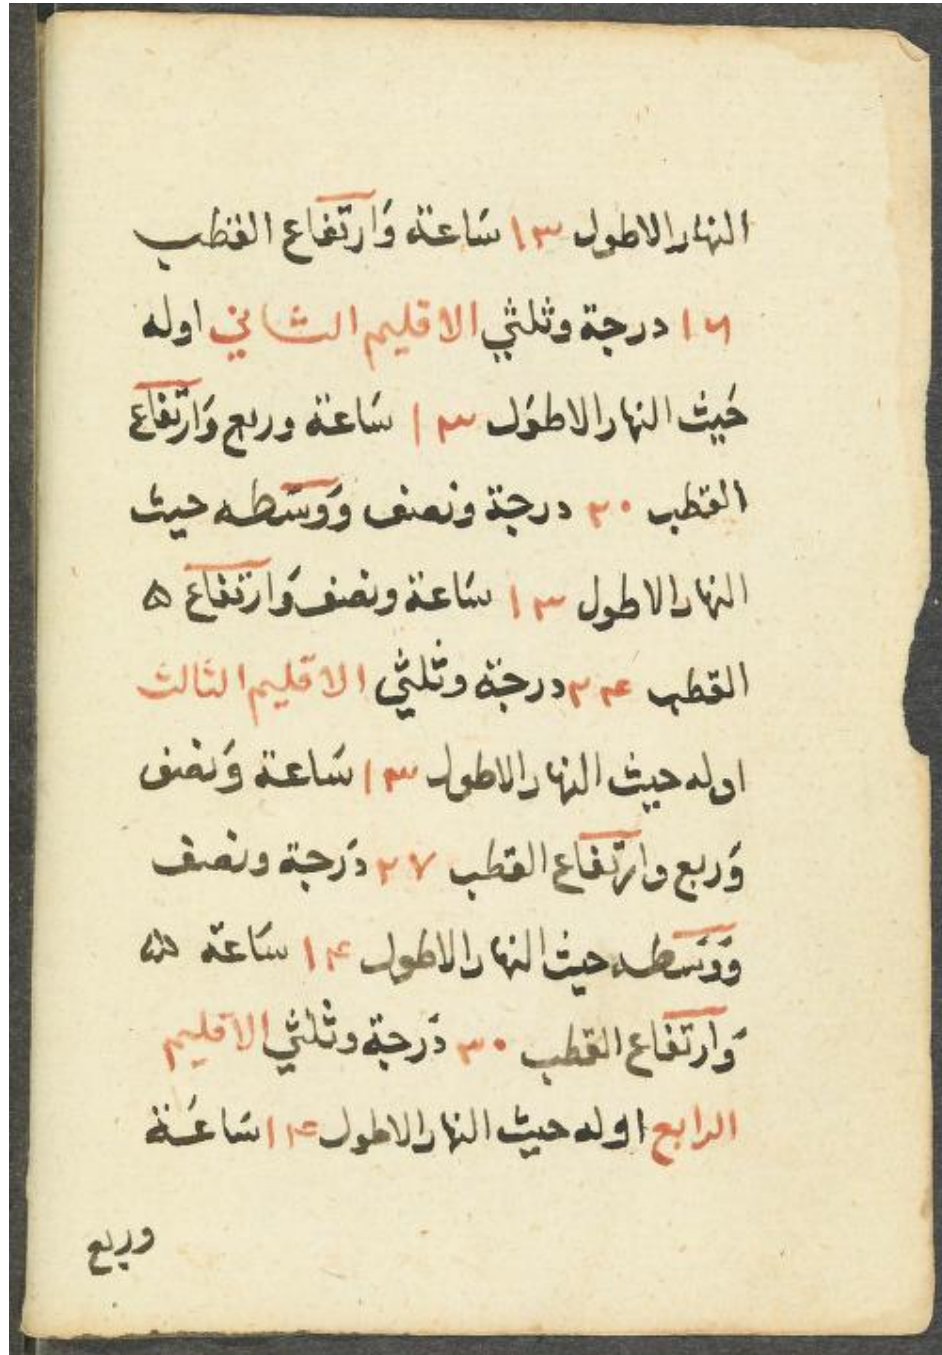 النهار الاطول ١٣ سَاعة وَارتفاع القطب
١٦ درجة وثلثي الاقليم الثاني اوله
حَيث النهار الاطوَل ١٣ سَاعة وربع وَارتفاع
القطب ٢٠ درجة ونصف وَوَسَطه حيث
النهار الاطول ١٣ سَاعة ونصف وَارتفاع ه
القطب ٢٤ درجة وثلثي الاقليم الثالث
اوله حيث النهار الاطول ١٣ سَاعة وَنصف
وَربع وارتفاع القطب ٢٧ دَرجة ونصف
وَوَسَطه حيث النهار الاطول ١٤ سَاعة ه
وَارتفاع القطب ٣٠ دَرجة وثلثي الاقليم
الرابع اوله حيث النهار الاطول ١٤ سَاعَة
وربع